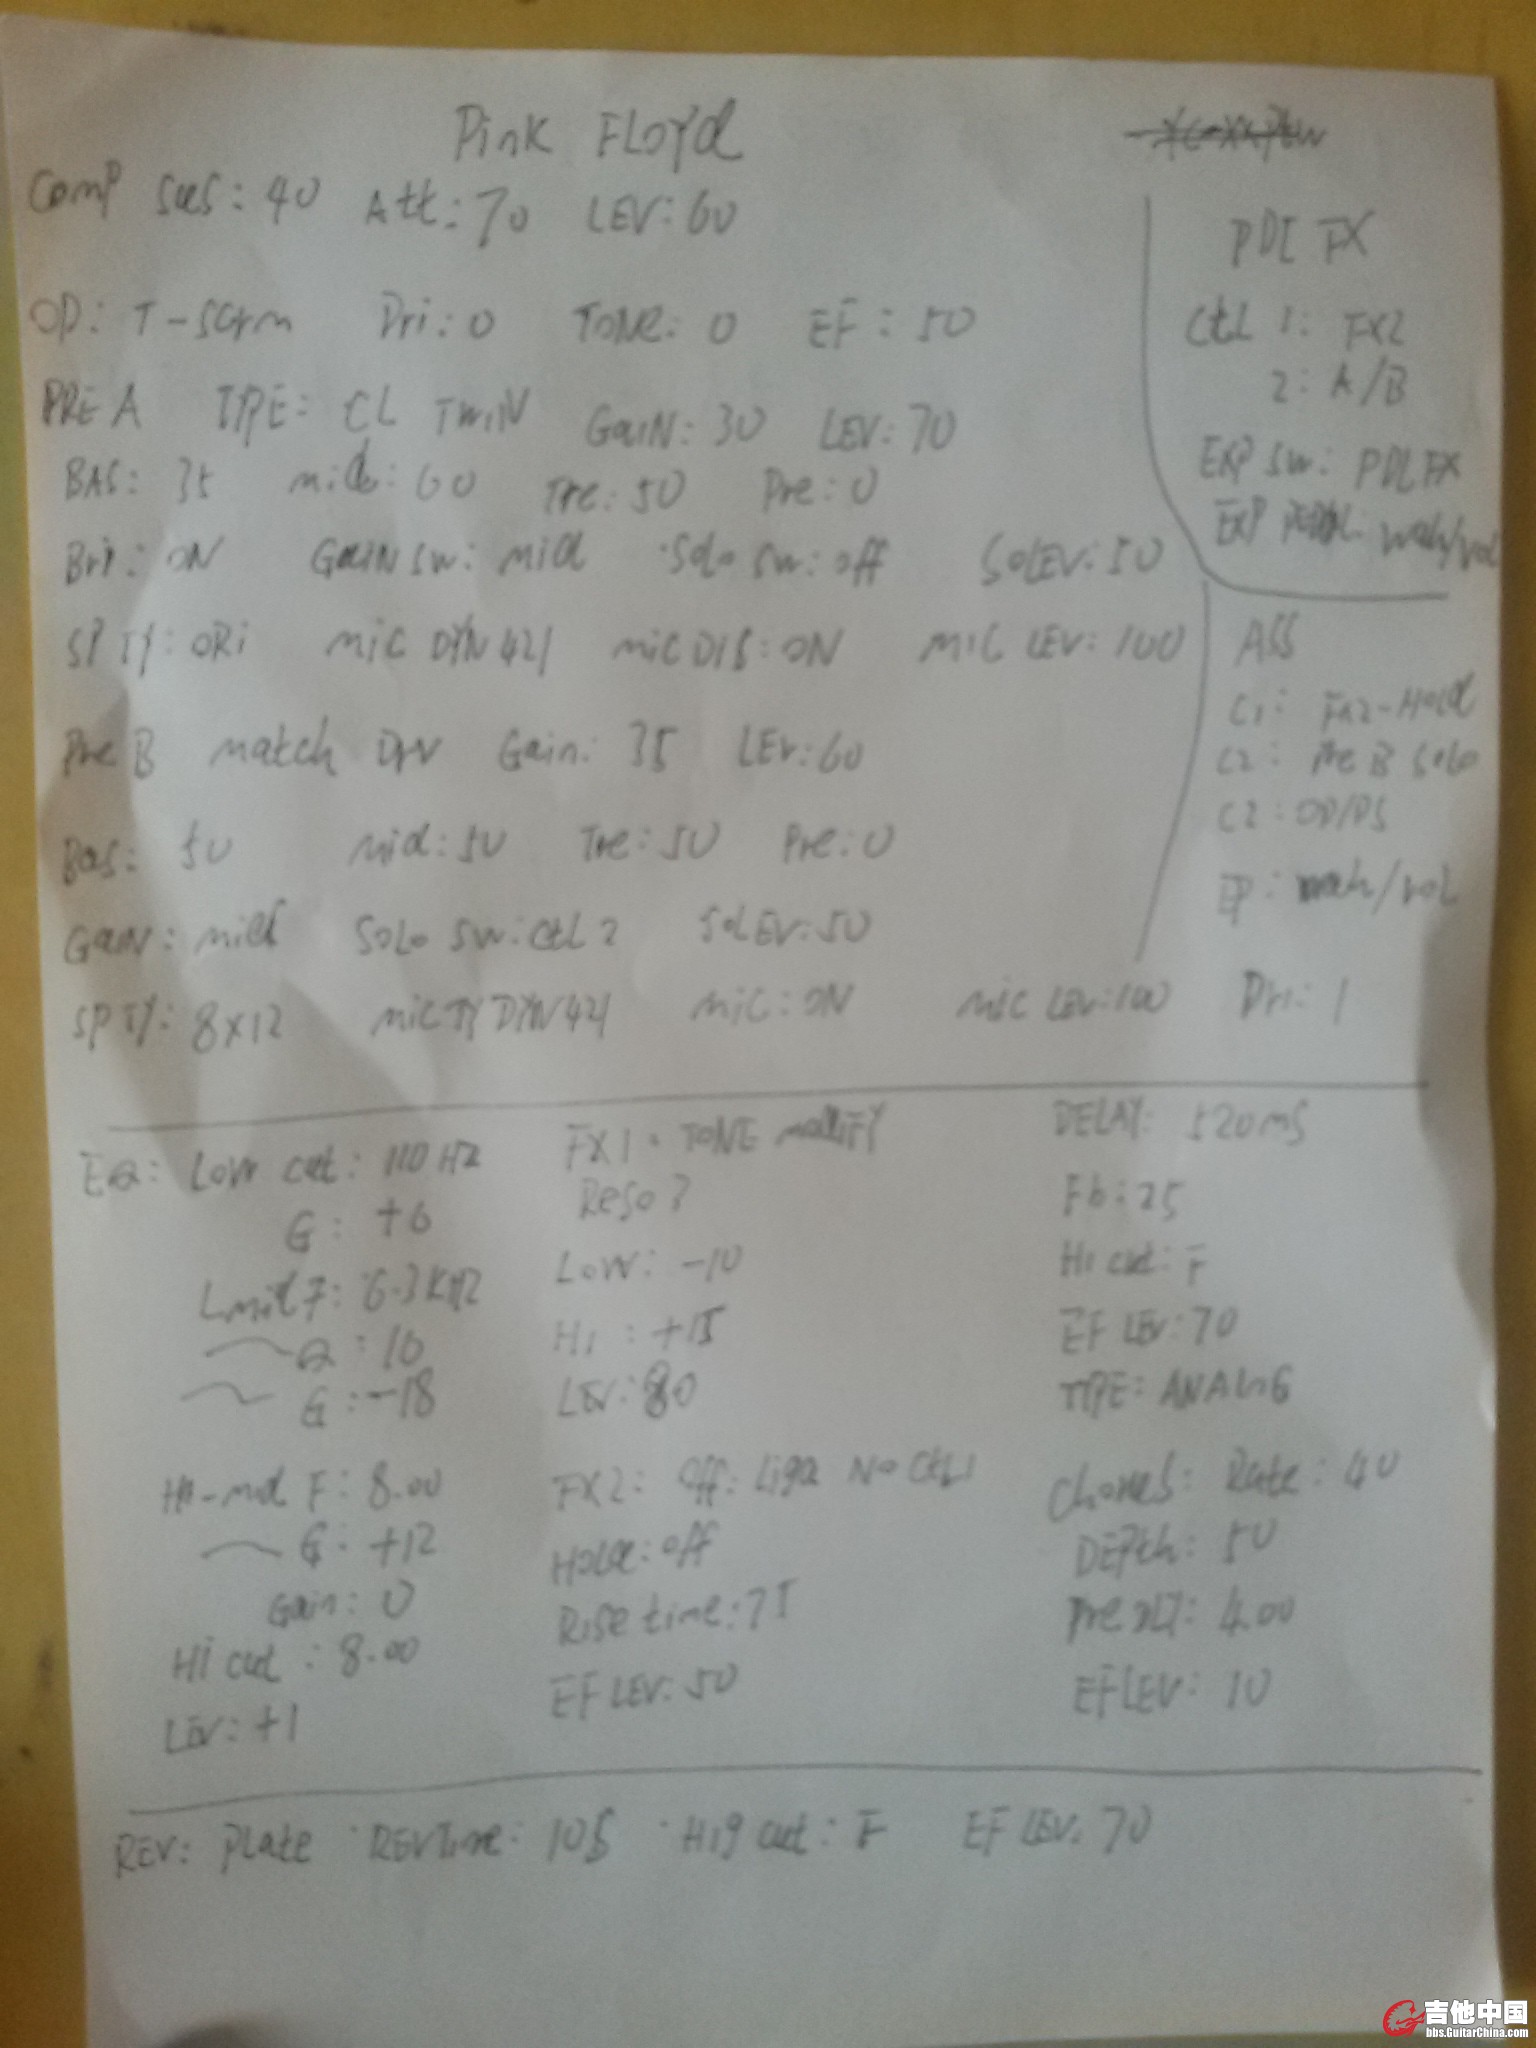 Pink FLOYd
Comp SUS: 40 Att: 70 LEV: 60
OD: T-SCrm Dri: 0 TONE: 0 EF: 50
PRE A TYPE: CL TWIN GaiN: 30 LEV: 70
BAS: 35 mid: 60 Tre: 50 Pre: 0
Bri: ON GaiN SW: mid Solo SW: off SOLEV: 50
SP TY: ORi MiC DYN 421 MiC DIS: ON MIC LEV: 100
Pre B match Drv Gain: 35 LEV: 60
Bas: 50 Mid: 50 Tre: 50 Pre: 0
GaiN: mid SOLO SW: CtL 2 SOLEV: 50
SP TY: 8x12 MiC TY DYN 421 MiC: ON MIC LEV: 100 Dri: 1
PDL FX
CtL 1: FX2
2: A/B
EXP SW: PDL FX
EXP wah/vol
ASS
C1: FX2-Hold
C2: Pre B Solo
C2: OD/DS
EP: wah/vol
EQ: LOW cut: 110 HZ
G: +6
Lmid F: 6.3KHZ
Q: 16
G: -18
Hi-mid F: 8.00
G: +12
Gain: 0
Hi cut: 8.00
LEV: +1
FX1: TONE mODIFY
Reso ?
LOW: -10
Hi: +15
LEV: 80
FX2: Off: NO CtL1
HOLd: off
Rise time: 75
EF LEV: 50
DELAY: 520ms
Fb: 25
Hi cut: F
EF LEV: 70
TYPE: ANALOG
Chorus: Rate: 40
DEPth: 50
Pre DLY: 4.00
EF LEV: 10
REV: Plate REVTime: 105 Hig cut: F EF LEV: 70
吉他中国
bbs.GuitarChina.com